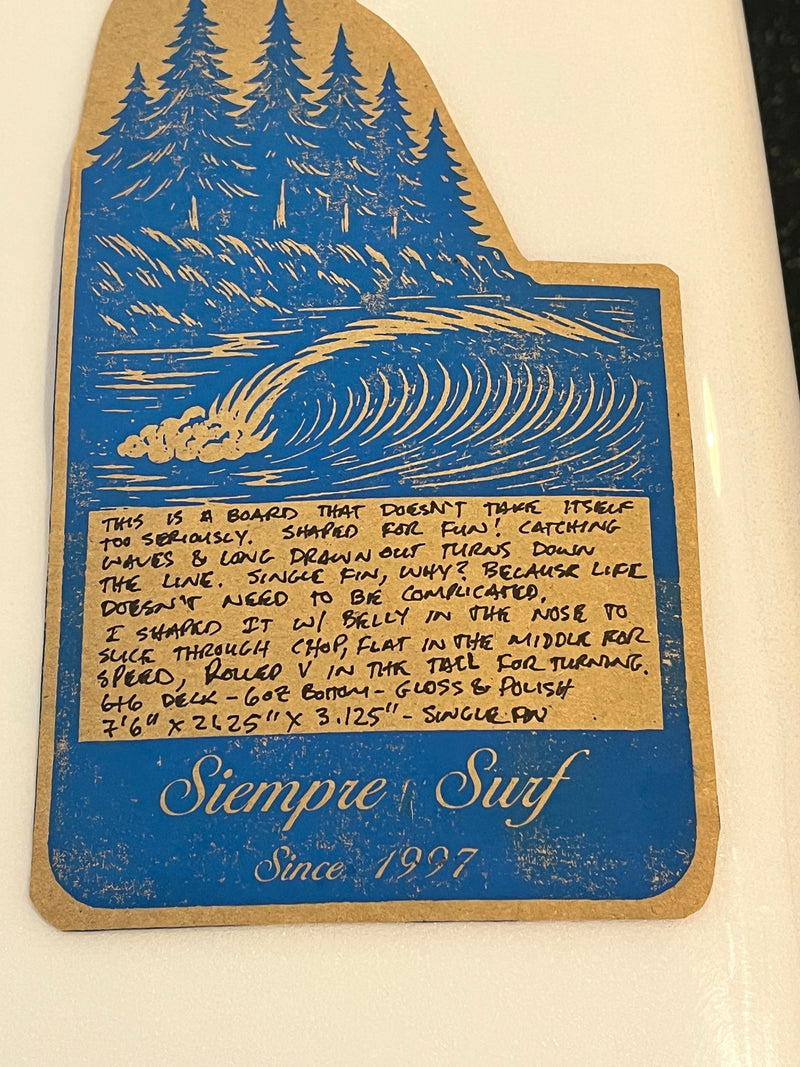 THIS IS A BOARD THAT DOESN'T TAKE ITSELF
TOO SERIOUSLY. SHAPED FOR FUN! CATCHING
WAVES & LONG DRAWN OUT TURNS DOWN
THE LINE. SINGLE FIN, WHY? BECAUSE LIFE
DOESN'T NEED TO BE COMPLICATED.
I SHAPED IT W/ BELLY IN THE NOSE TO
SLICE THROUGH CHOP, FLAT IN THE MIDDLE FOR
SPEED, ROLLED V IN THE TAIL FOR TURNING.
6+6 DECK - 6OZ BOTTOM - GLOSS & POLISH
7'6" X 21.25" X 3.125" - SINGLE FIN
Siempre Surf
Since 1997